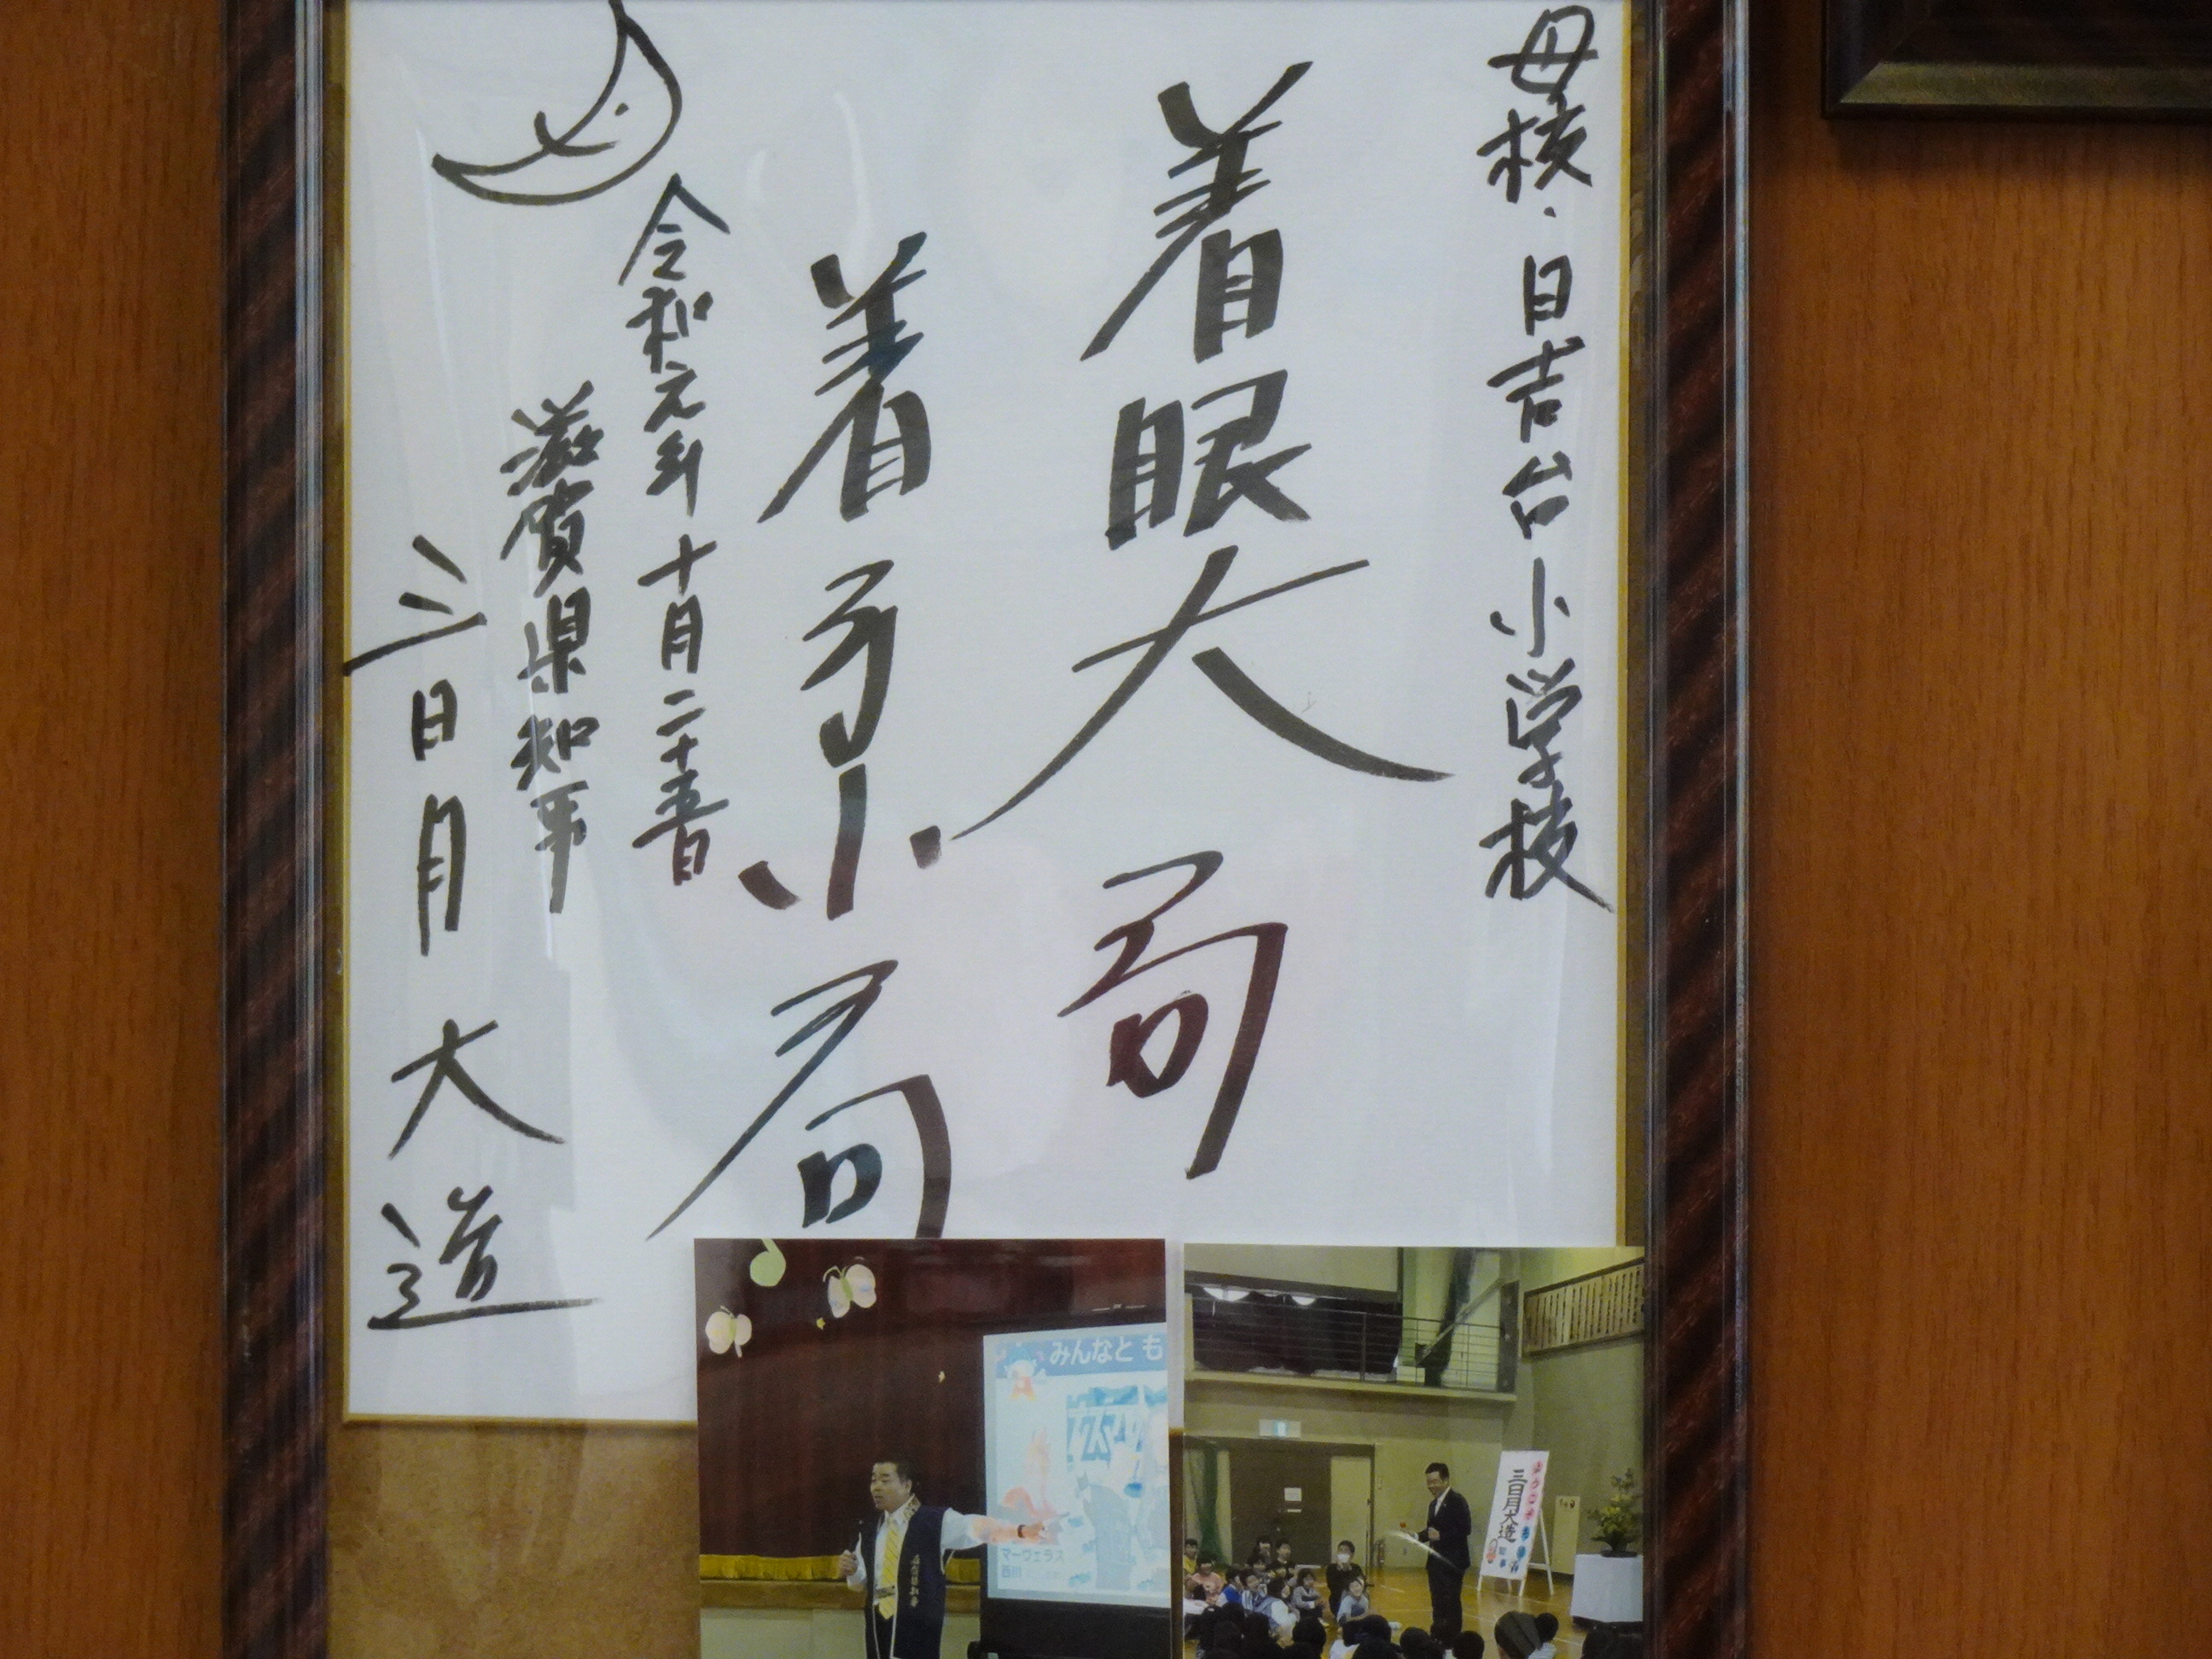 母校・日吉台小学校
着眼大局
着手小局
令和元年十月二十五日
滋賀県知事
三日月大造
みんなとも
マーヴェラス
西川
ようこそ
三日月大造
知事